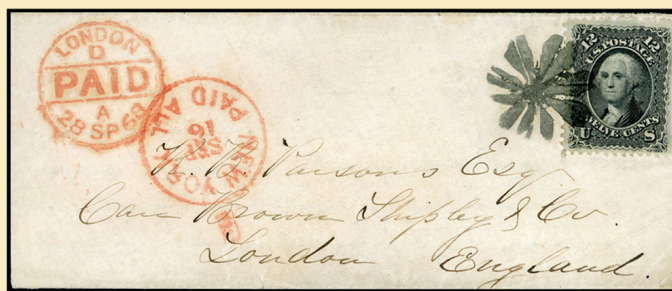 LONDON
D
PAID
A
28 SP 68
NEW YORK
SEP
16
PAID ALL
12 12
U.S. POSTAGE
TWELVE CENTS
U S
K. B. Parsons Esq
Care Brown Shipley & Co.
London England.